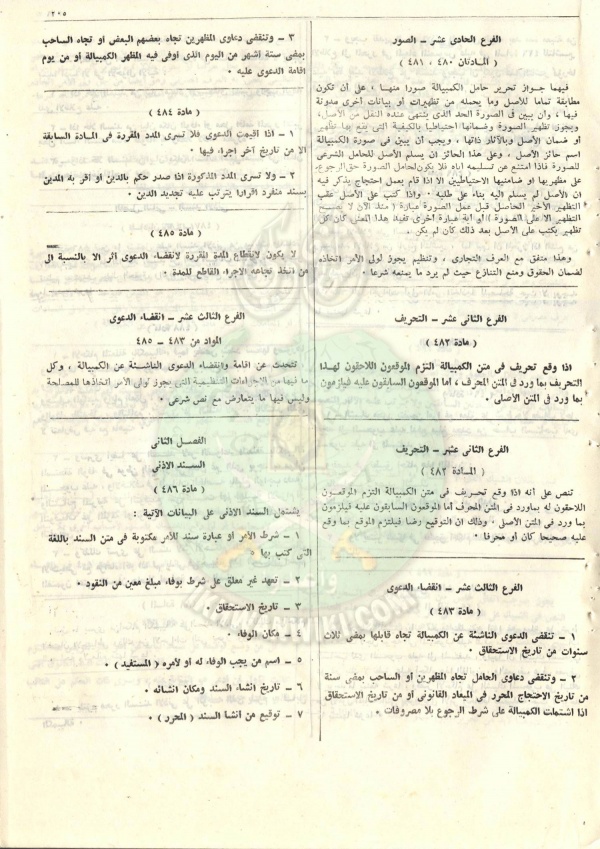 ٢٠٥
الفرع الحادى عشر ــ الصور
( المـادتان ٤٨٠ ، ٤٨١ )
فيهما جـواز تحرير حامل الكمبيالة صورا منهـا ، على أن تكون
مطابقة تماما للأصل وما يحمله من تظهيرات أو بيانات أخرى مدونة
فيها ، وأن يبين فى الصورة الحد الذى ينتهى عنده النقل من الأصل،
ويجوز تظهير الصورة وضمانها احتياطيا بالكيفية التى يقع بها تظهير
أو ضمان الأصل وبالآثار ذاتها ، ويجب أن يبين فى صورة الكمبيالة
اسم حائز الأصل ، وعلى هذا الحائز ان يسلم الأصل للحامل الشرعى
للصورة فاذا امتنع عن تسليمه اياه فلا يكون لحامل الصورة حق الرجوع،
على مظهريها او ضامنيها الاحتياطيين الا اذا قام بعمل احتجاج يذكر فيه
ان الأصل لم يسلم اليه بناء على طلبه ٠ واذا كتب على الأصل عقب
التظهير الأخير الحاصل قبل عمل الصورة عبارة ( منذ الآن لا يصـح
التظهير الا على الصورة ) أو اية عبارة أخرى تفيد هذا المعنى كان كل
تظهير يكتب على الأصل بعد ذلك كان لم يكن ٠
وهذا متفق مع العرف التجارى ، وتنظيم يجوز لولى الأمر اتخاذه
لضمان الحقوق ومنع التنازع حيث لم يرد ما يمنعه شرعا ٠
الفرع الثانى عشر ــ التحريف
( مادة ٤٨٢ )
اذا وقع تحريف فى متن الكمبيالة التزم الموقعون اللاحقون لهـذا
التحريف بما ورد فى المتن المحرف ، أما الموقعون السابقون عليه فيلزمون
بما ورد فى المتن الأصلى ٠
الفرع الثانى عشر ــ التحريف
( المـادة ٤٨٢ )
تنص على أنه اذا وقع تحـريف فى متن الكمبيالة التزم الموقعـون
اللاحقون له بماورد فى المتن المحرف أما الموقعون السابقون عليه فيلزمون
بما ورد فى المتن الأصل ، وذلك ان التوقيع رضا فيلتزم الموقع بما وقع
عليه صحيحا كان أو محرفا ٠
الفرع الثالث عشر ــ انقضاء الدعوى
( مادة ٤٨٣ )
١ ــ تنقضى الدعوى الناشئة عن الكمبيالة تجاه قابلها بمضى ثلاث
سنوات من تاريخ الاستحقاق ٠
٢ ــ وتنقضى دعاوى الحامل تجاه المظهرين أو الساحب بمضى سنة
من تاريخ الاحتجاج المحرر فى الميعاد القانونى أو من تاريخ الاستحقاق
اذا اشتملت الكمبيالة على شرط الرجوع بلا مصروفات ٠
٣ ــ وتنقضى دعاوى المظهرين تجاه بعضهم البعض أو تجاه الساحب
بمضى ستة أشهر من اليوم الذى أوفى فيه المظهر الكمبيالة أو من يوم
اقامة الدعوى عليه ٠
( مادة ٤٨٤ )
١ ــ اذا أقيمت الدعوى فلا تسرى المدد المقررة فى المـادة السابقة
الا من تاريخ آخر اجراء فيها ٠
٢ ــ ولا تسرى المدد المذكورة اذا صدر حكم بالدين أو اقر به المدين
بسند منفرد اقرارا يترتب عليه تجديد الدين ٠
( مادة ٤٨٥ )
لا يكون لانقطاع المدة المقررة لانقضاء الدعوى أثر الا بالنسبة الى
من اتخذ تجاهه الاجراء القاطع للمدة ٠
الفرع الثالث عشر ــ انقضاء الدعوى
المواد من ٤٨٣ ــ ٤٨٥
تتحدث عن اقامة وانقضاء الدعوى الناشـئة عن الكمبيالة ، وكل
ما فيها من الاجراءات التنظيمية التى يجوز لولى الأمر اتخاذها للمصلحة
وليس فيها ما يتعارض مع نص شرعى ٠
الفصـل الثانى
السـند الاذنى
( مادة ٤٨٦ )
يشتمل السند الاذنى على البيانات الآتية :
١ ــ شرط الأمر أو عبارة سند للأمر مكتوبة فى متن السند باللغة
التى كتب بها ٠
٢ ــ تعهد غير معلق على شرط بوفاء مبلغ معين من النقود ٠
٣ ــ تاريخ الاستحقاق ٠
٤ ــ مكان الوفاء ٠
٥ ــ اسم من يجب الوفاء له أو لأمره ( المستفيد ) ٠
٦ ــ تاريخ انشاء السند ومكان انشائه ٠
٧ ــ توقيع من أنشأ السند ( المحرر ) ٠
IKHWANWIKI.COM